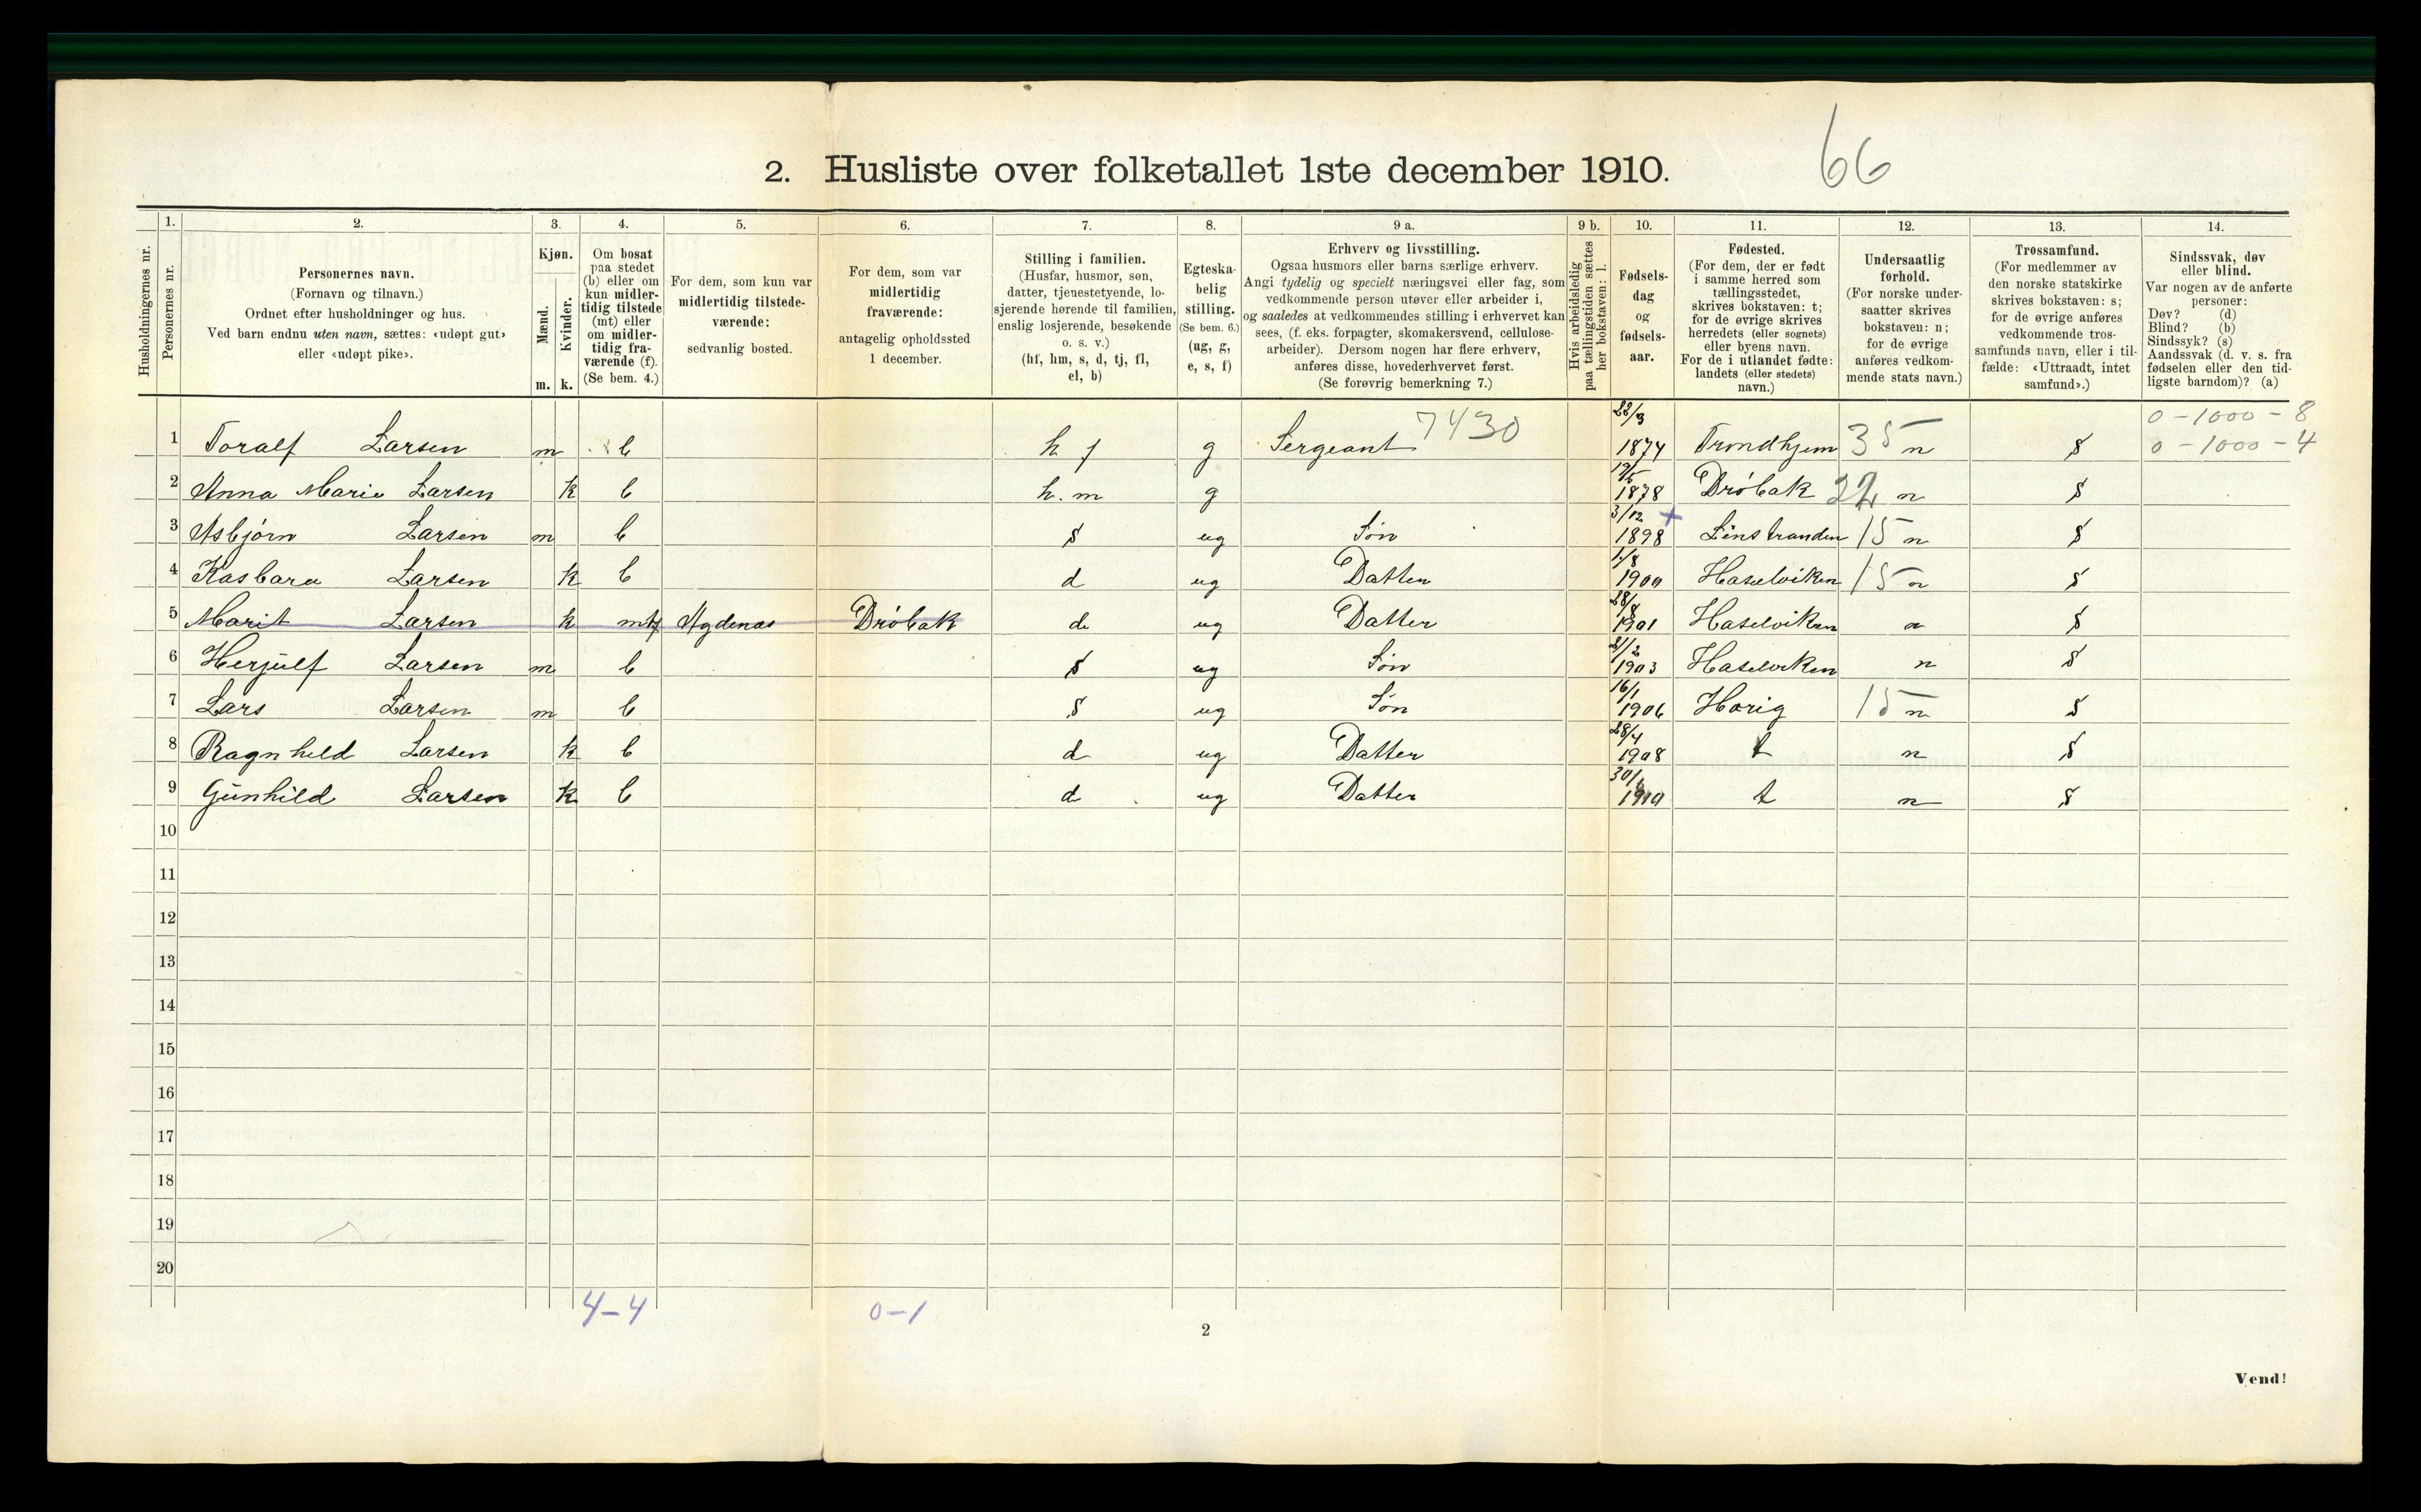 66
2. Husliste over folketallet 1ste december 1910.
1. 2. 3. 4. 5. 6. 7. 8. 9 a. 9 b. 10. 11. 12. 13. 14.
Husholdningernes nr.
Personernes nr.
Personernes navn.
(Fornavn og tilnavn.)
Ordnet efter husholdninger og hus.
Ved barn endnu uten navn, sættes: «udøpt gut»
eller «udøpt pike».
Kjøn.
Mænd.
Kvinder.
m. k.
Om bosat
paa stedet
(b) eller om
kun midler-
tidig tilstede
(mt) eller
om midler-
tidig fra-
værende (f).
(Se bem. 4.)
For dem, som kun var
midlertidig tilstede-
værende:
sedvanlig bosted.
For dem, som var
midlertidig
fraværende:
antagelig opholdssted
1 december.
Stilling i familien.
(Husfar, husmor, søn,
datter, tjenestetyende, lo-
sjerende hørende til familien,
enslig losjerende, besøkende
o. s. v.)
(hf, hm, s, d, tj, fl,
el, b)
Egteska-
belig
stilling.
(Se bem. 6.)
(ug, g,
e, s, f)
Erhverv og livsstilling.
Ogsaa husmors eller barns særlige erhverv.
Angi tydelig og specielt næringsvei eller fag, som
vedkommende person utøver eller arbeider i,
og saaledes at vedkommendes stilling i erhvervet kan
sees, (f. eks. forpagter, skomakersvend, cellulose-
arbeider). Dersom nogen har flere erhverv,
anføres disse, hovederhvervet først.
(Se forøvrig bemerkning 7.)
Hvis arbeidsledig
paa tællingstiden sættes
her bokstaven: l.
Fødsels-
dag
og
fødsels-
aar.
Fødested.
(For dem, der er født
i samme herred som
tællingsstedet,
skrives bokstaven: t;
for de øvrige skrives
herredets (eller sognets)
eller byens navn.
For de i utlandet fødte:
landets (eller stedets)
navn.)
Undersaatlig
forhold.
(For norske under-
saatter skrives
bokstaven: n;
for de øvrige
anføres vedkom-
mende stats navn.)
Trossamfund.
(For medlemmer av
den norske statskirke
skrives bokstaven: s;
for de øvrige anføres
vedkommende tros-
samfunds navn, eller i til-
fælde: «Uttraadt, intet
samfund».)
Sindssvak, døv
eller blind.
Var nogen av de anførte
personer:
Døv? (d)
Blind? (b)
Sindssyk? (s)
Aandssvak (d. v. s. fra
fødselen eller den tid-
ligste barndom)? (a)
0-1000-8
1 Toralf Larsen m b h f g Sergeant 7430 22/3 1874 Trondhjem 35 n s 0-1000-4
2 Anna Marie Larsen k b h.m g 1878 Drøbak 22 n s
3 Asbjørn Larsen m b s ug Søn 3/12 1898 Linstranden 15 n s
4 Kasbara Larsen k b d ug Datter 1/8 1900 Haselviken 15 n s
5 Marit Larsen k mt Agdenæs Drøbak d ug Datter 1901 Haselviken n s
6 Herjulf Larsen m b s ug Søn 1903 Haselviken n s
7 Lars Larsen m b s ug Søn 16/1 1906 Horig 15 n s
8 Ragnhild Larsen k b d ug Datter 28/4 1908 t n s
9 Gunhild Larsen k b d ug Datter 1910 t n s
10
11
12
13
14
15
16
17
18
19
20
4-4 0-1
2
Vend!